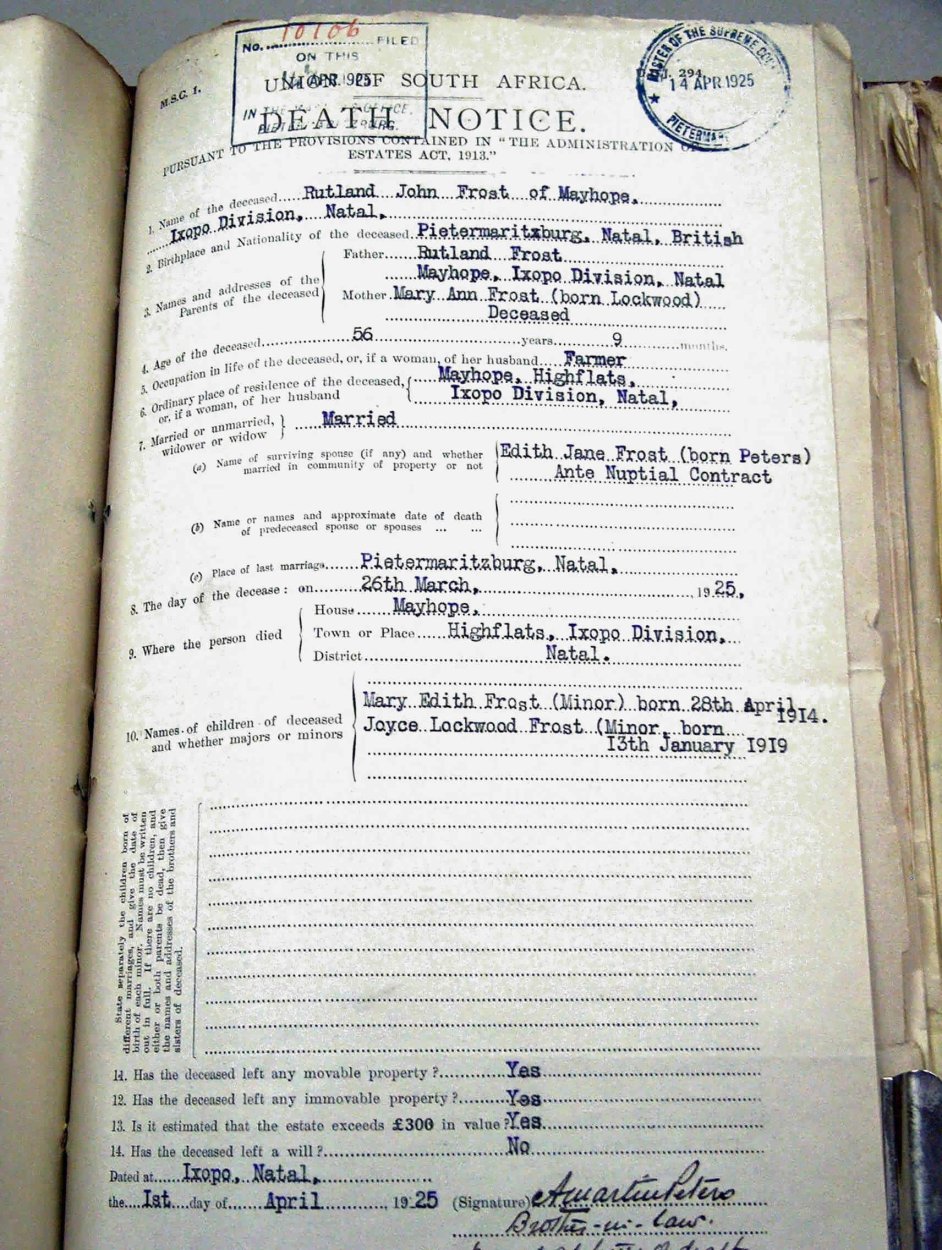 No. 10106 FILED
ON THIS
14 APR. 1925
IN THE MASTER'S OFFICE,
PIETERMARITZBURG.
MASTER OF THE SUPREME COURT
14 APR 1925
★ PIETERMA
M.S.C. 1.
294
UNION OF SOUTH AFRICA.
DEATH NOTICE.
PURSUANT TO THE PROVISIONS CONTAINED IN "THE ADMINISTRATION OF
ESTATES ACT, 1913."
1. Name of the deceased Rutland John Frost of Mayhope,
Ixopo Division, Natal,
2. Birthplace and Nationality of the deceased Pietermaritxburg, Natal, British
3. Names and addresses of the Parents of the deceased
Father Rutland Frost
Mayhope, Ixopo Division, Natal
Mother Mary Ann Frost (born Lockwood)
Deceased
4. Age of the deceased 56 years 9 months.
5. Occupation in life of the deceased, or, if a woman, of her husband Farmer
6. Ordinary place of residence of the deceased, Mayhope, Highflats,
or, if a woman, of her husband Ixopo Division, Natal,
7. Married or unmarried, widower or widow Married
(a) Name of surviving spouse (if any) and whether Edith Jane Frost (born Peters)
married in community of property or not Ante Nuptial Contract
(b) Name or names and approximate date of death
of predeceased spouse or spouses ... ...
(c) Place of last marriage Pietermaritzburg, Natal,
8. The day of the decease: on 26th March, 1925,
9. Where the person died
House Mayhope,
Town or Place Highflats, Ixopo Division,
District Natal.
10. Names of children of deceased
and whether majors or minors
Mary Edith Frost (Minor) born 28th April
1914.
Joyce Lockwood Frost (Minor, born
13th January 1919
State separately the children born of
different marriages, and give the date of
birth of each minor. Names must be written
out in full. If there are no children, and
either or both parents be dead, then give
the names and addresses of the brothers and
sisters of deceased.
11. Has the deceased left any movable property? Yes
12. Has the deceased left any immovable property? Yes
13. Is it estimated that the estate exceeds £300 in value? Yes
14. Has the deceased left a will? No
Dated at Ixopo, Natal,
the Ist day of April 1925 (Signature) A Martin Peters
Brother-in-law.